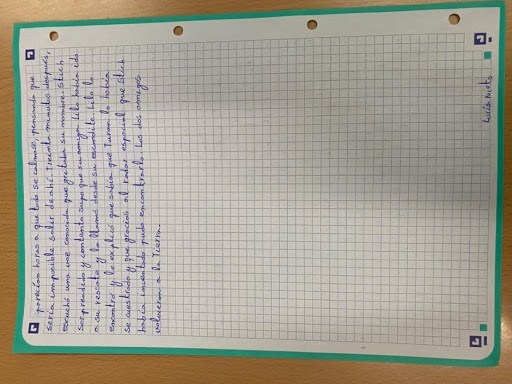 parecían horas a que todo se calmase, pensando que
sería imposible salir de ahí. Treinta minutos después,
escuchó una voz conocida que gritaba su nombre. Stich
sorprendido y contento supo que su amiga Lilo había ido
a su rescate y la llamó desde su escondite. Lilo lo
encontró y le explicó que sabía que Turon lo había
secuestrado y que gracias al radar espacial que Stich
había inventado pudo encontrarlo. Los dos amigos
volvieron a la Tierra.
Lucía Nieto